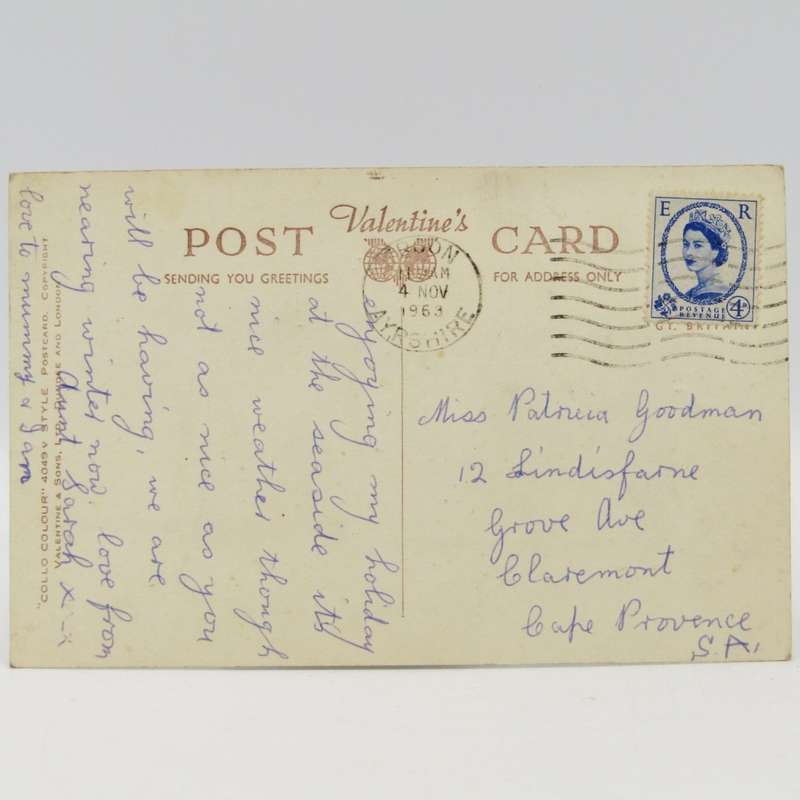 Valentine's
POST CARD
SENDING YOU GREETINGS
FOR ADDRESS ONLY
11 AM
4 NOV
1963
AYRSHIRE
E R
POSTAGE
REVENUE
4D
GT. BRITAIN
enjoying my holiday
at the seaside its
nice weather though
not as nice as you
will be having, we are
nearing winter now. love from
Aunt Sarah x
love to mummy &
Miss Patricia Goodman
12 Lindisfarne
Grove Ave
Claremont
Cape Provence
S.A.
"COLLO COLOUR" 4049 V STYLE POSTCARD. COPYRIGHT
VALENTINE & SONS, LTD. AND LONDON